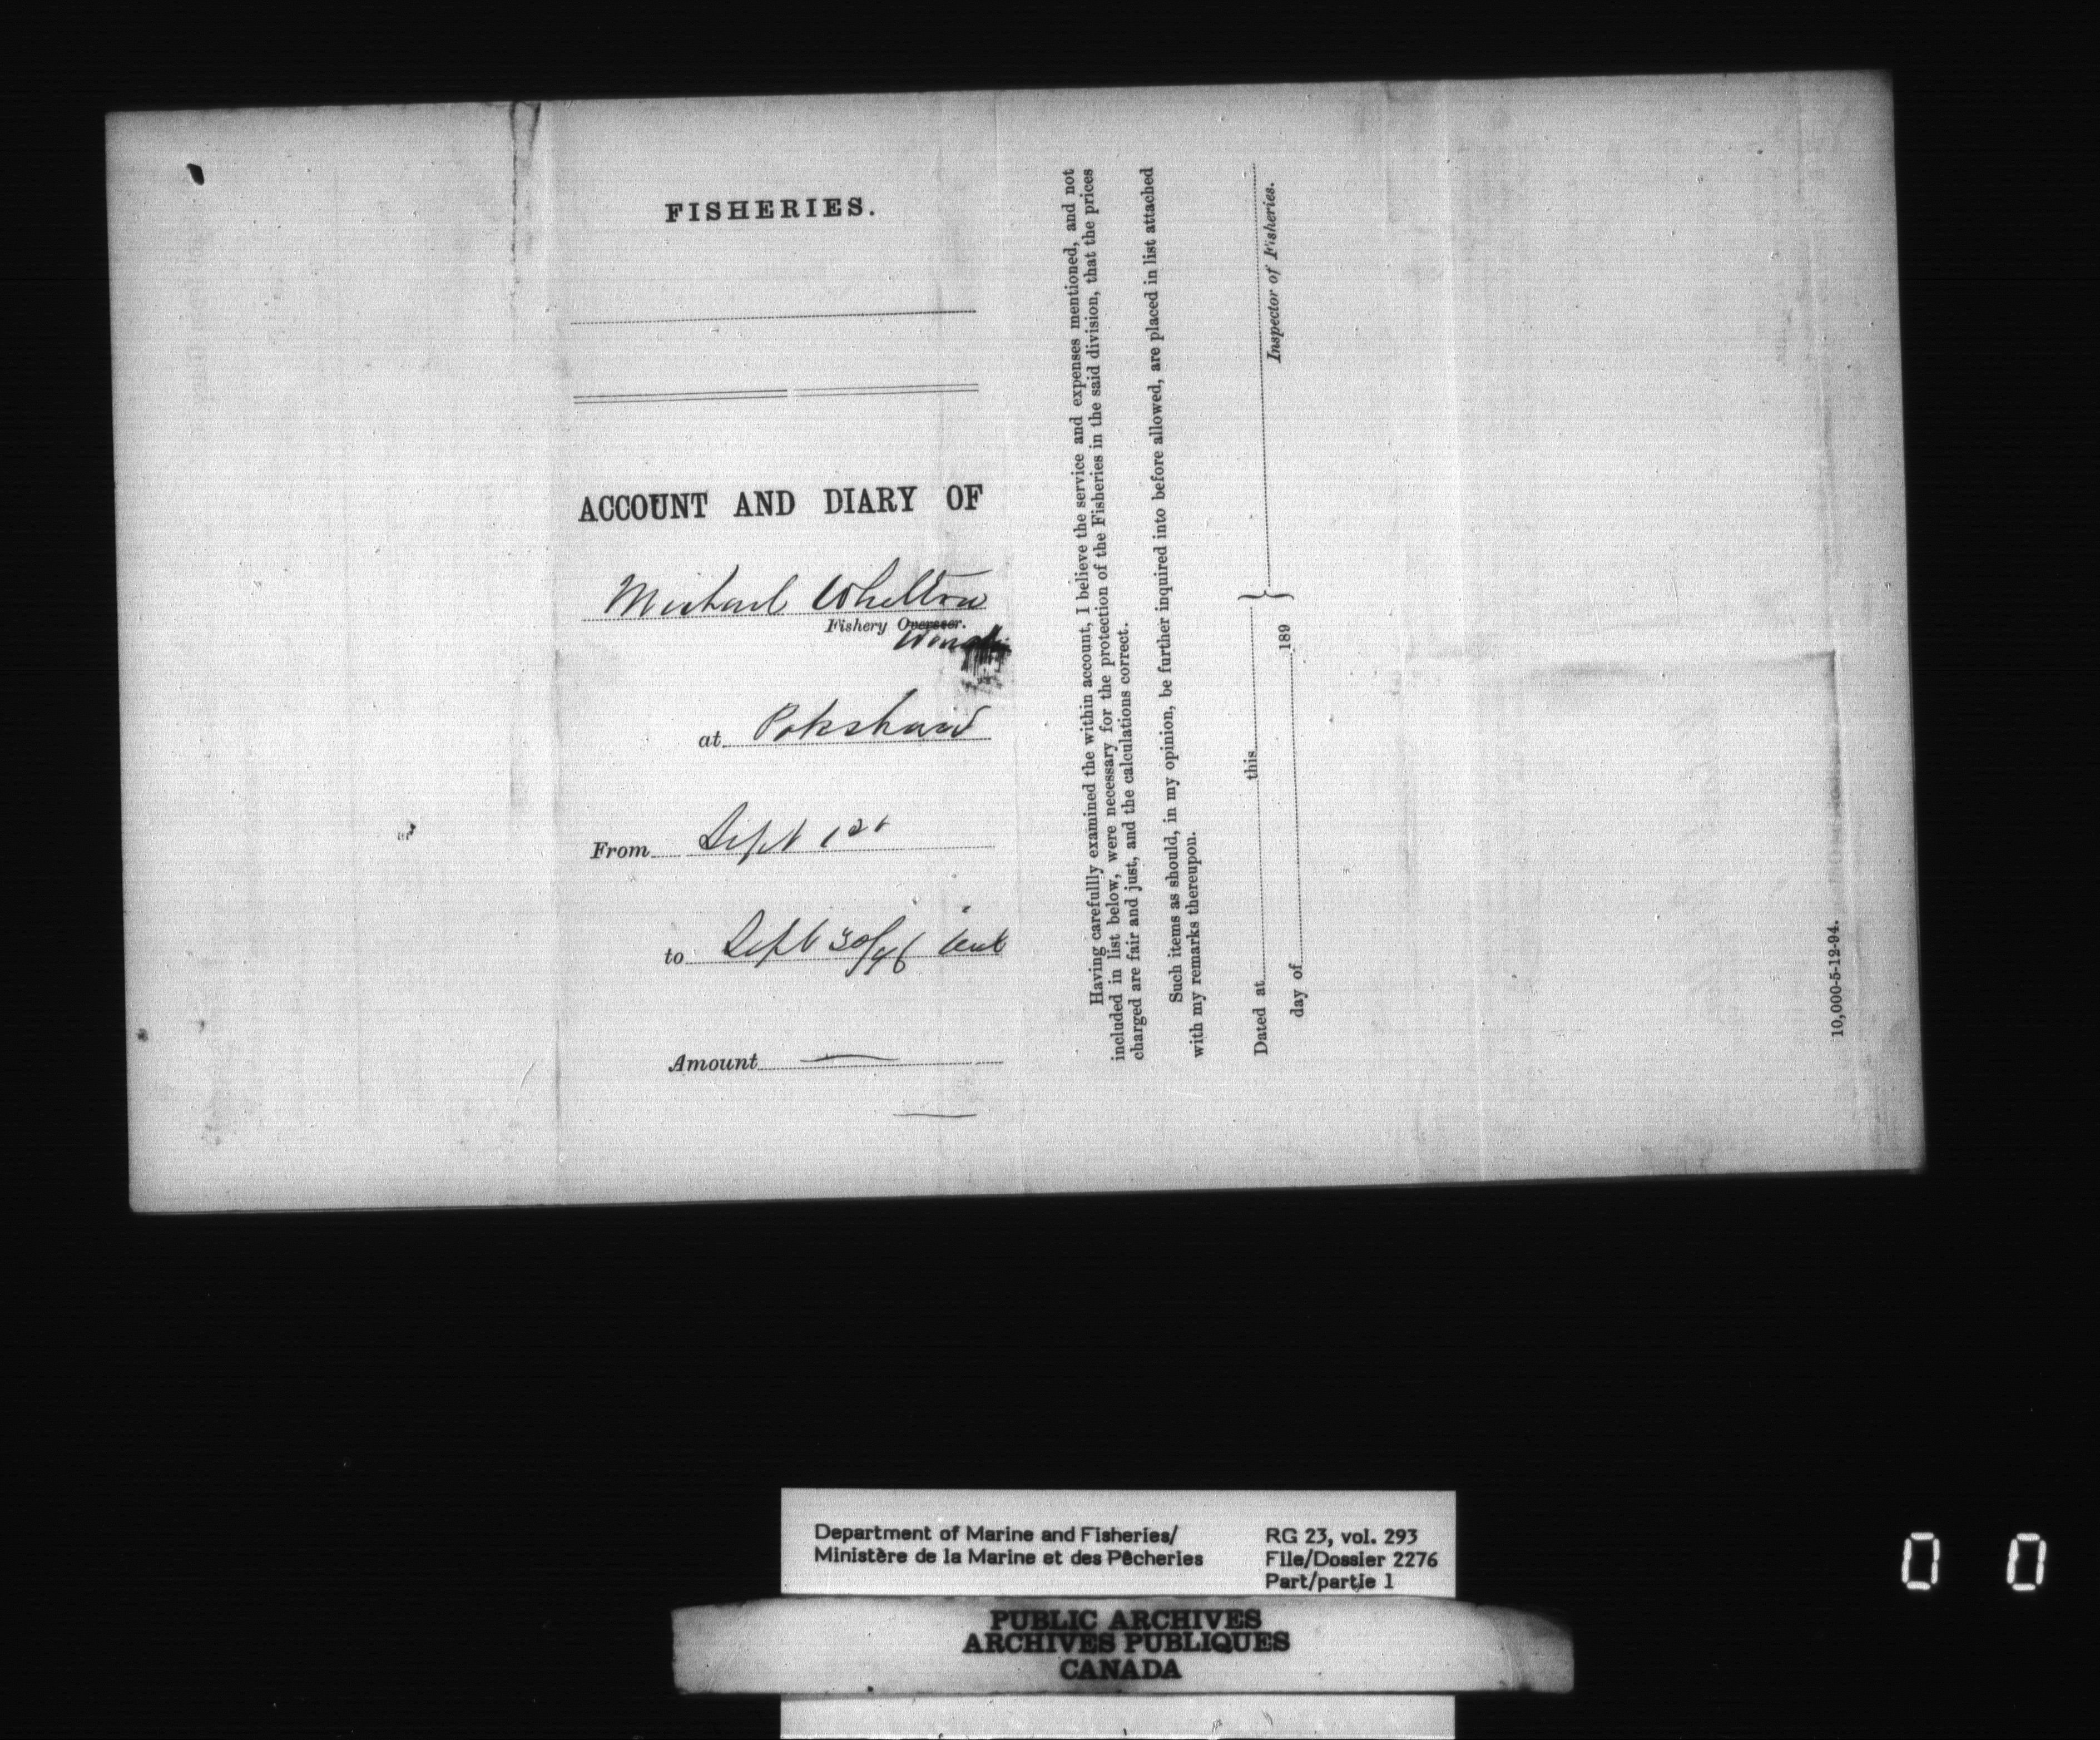 FISHERIES.
ACCOUNT AND DIARY OF
Michael Whelton
Fishery Overseer.
at Pokshaw
From Sept 1st
to Sept 30/96
Amount
Having carefullly examined the within account, I believe the service and expenses mentioned, and not
included in list below, were necessary for the protection of the Fisheries in the said division, that the prices
charged are fair and just, and the calculations correct.
Such items as should, in my opinion, be further inquired into before allowed, are placed in list attached
with my remarks thereupon.
Dated at this
day of 189
Inspector of Fisheries.
10,000-5-12-94.
Department of Marine and Fisheries/
Ministère de la Marine et des Pêcheries
RG 23, vol. 293
File/Dossier 2276
Part/partie 1
PUBLIC ARCHIVES
ARCHIVES PUBLIQUES
CANADA
0 0